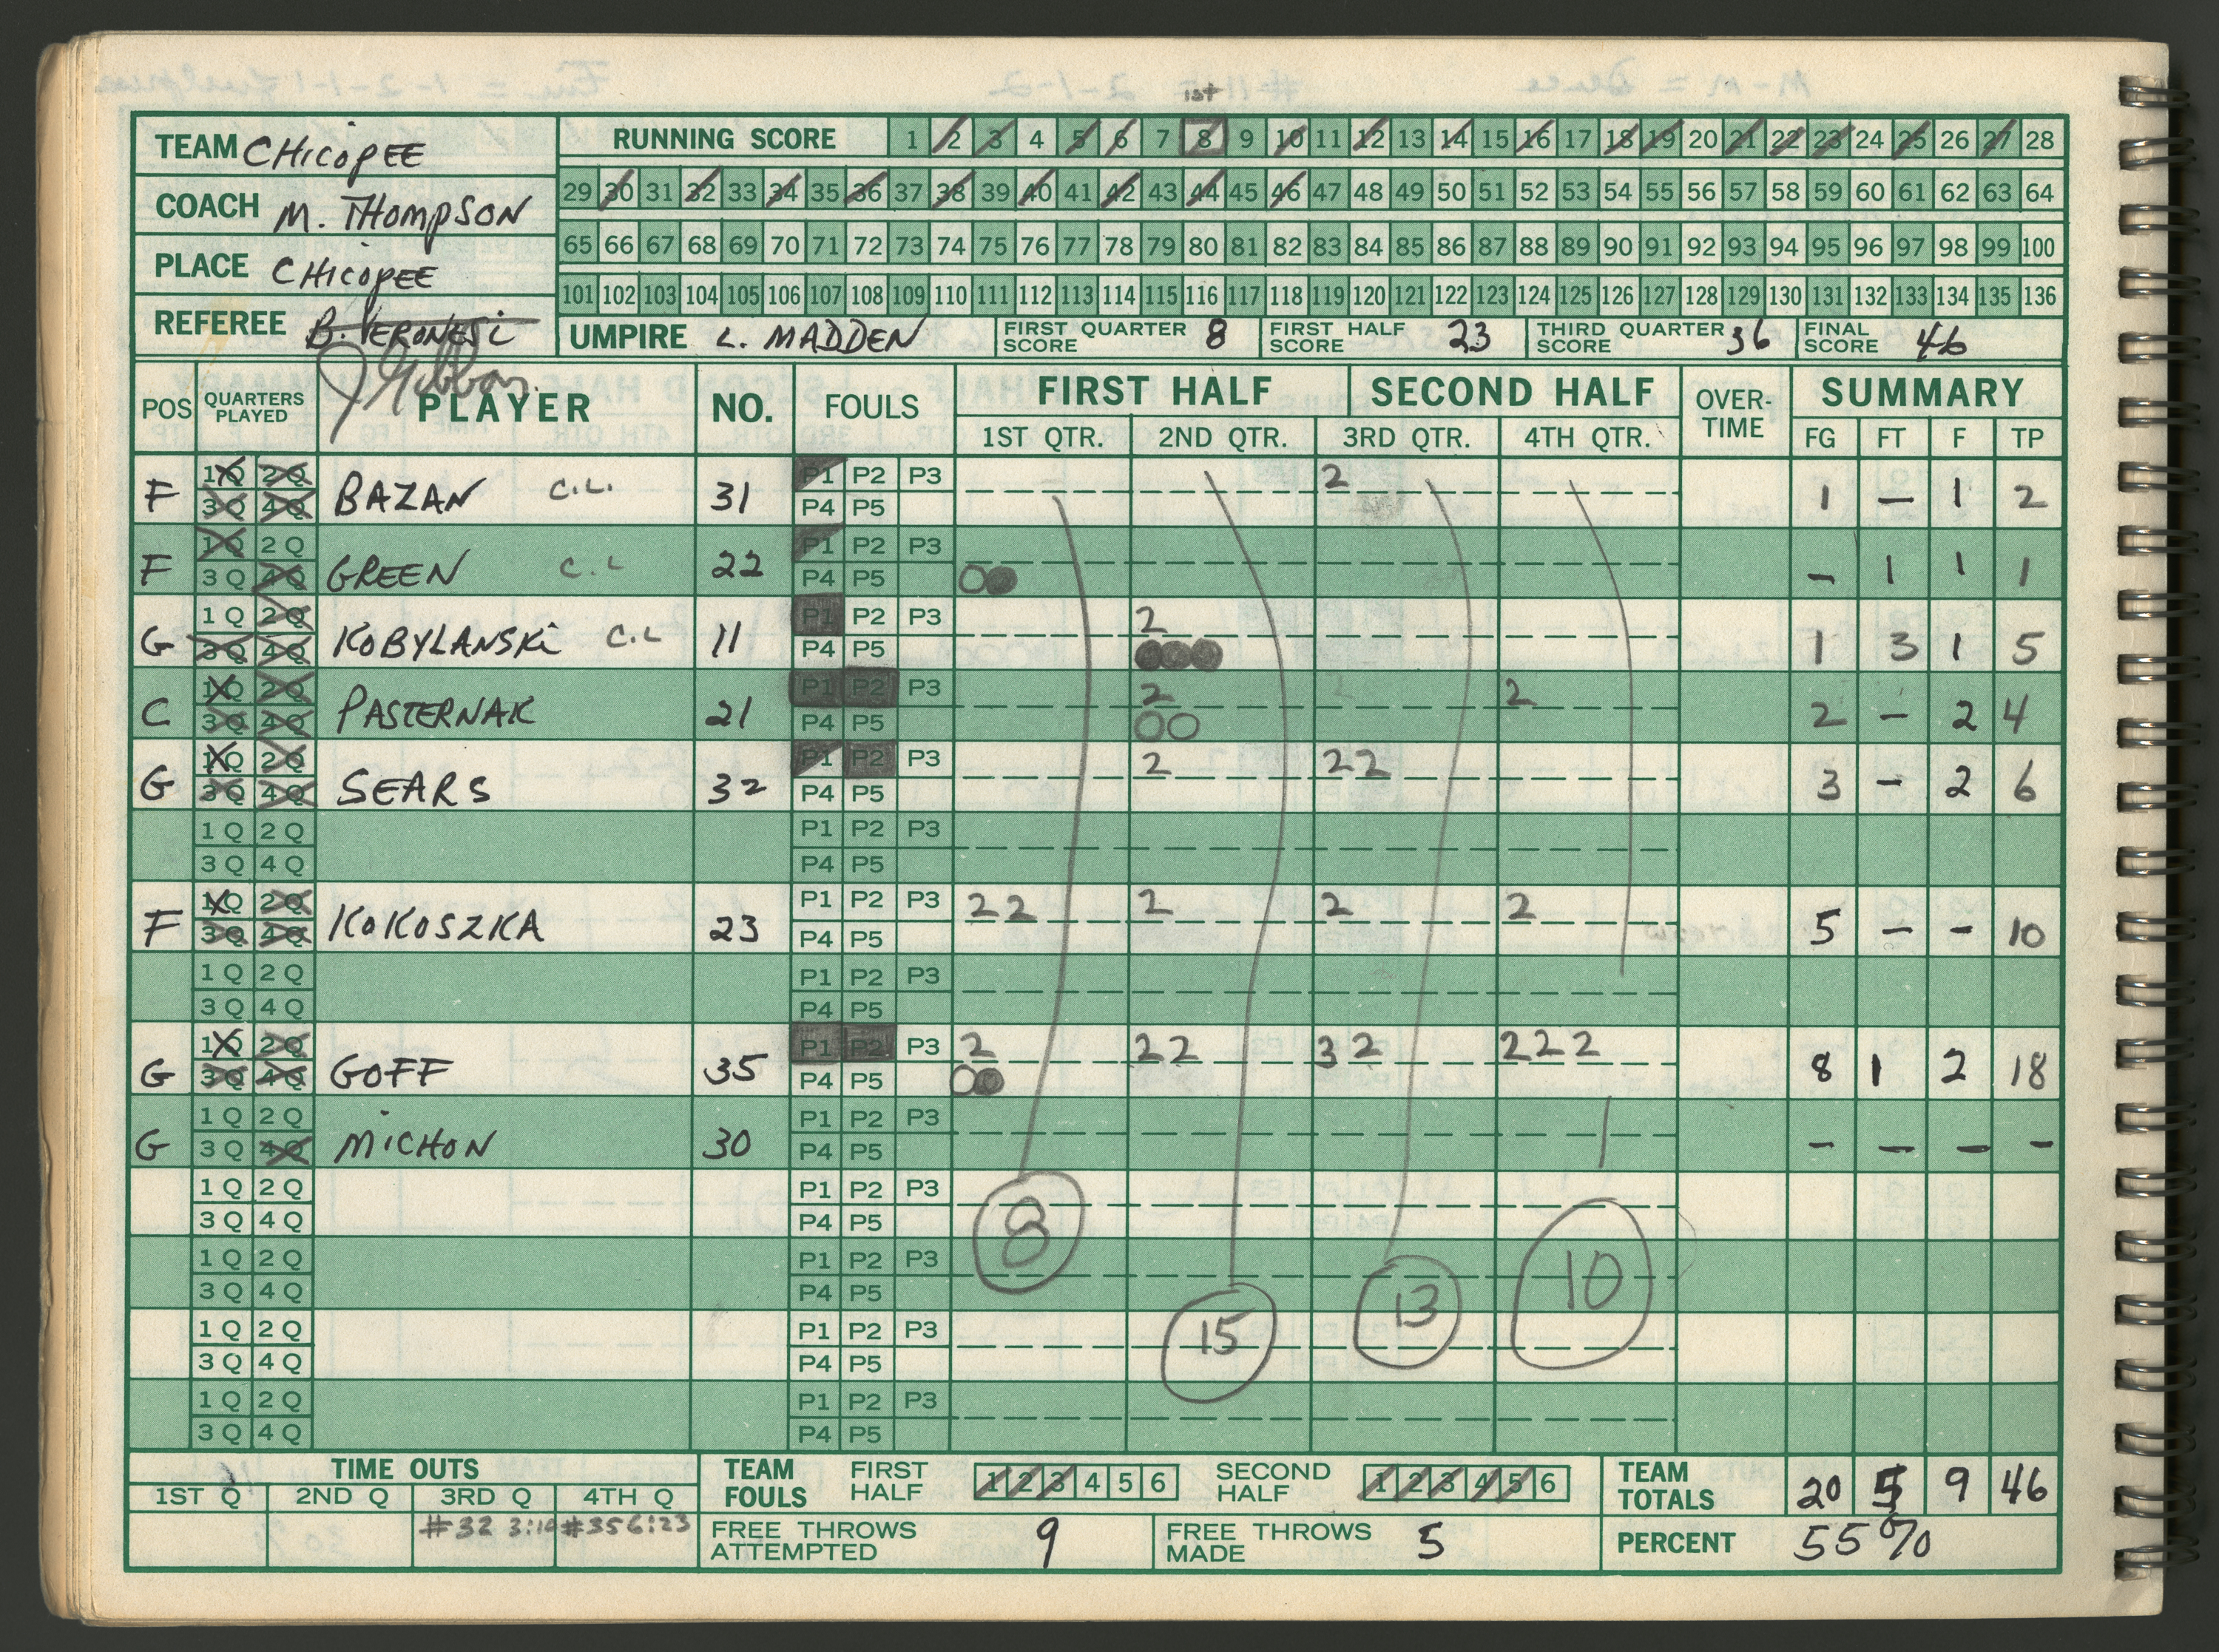 1st
TEAM CHICOPEE
COACH M. THOMPSON
PLACE CHICOPEE
REFEREE B. VERONESI
J Gibbons
RUNNING SCORE 1 2 3 4 5 6 7 8 9 10 11 12 13 14 15 16 17 18 19 20 21 22 23 24 25 26 27 28
29 30 31 32 33 34 35 36 37 38 39 40 41 42 43 44 45 46 47 48 49 50 51 52 53 54 55 56 57 58 59 60 61 62 63 64
65 66 67 68 69 70 71 72 73 74 75 76 77 78 79 80 81 82 83 84 85 86 87 88 89 90 91 92 93 94 95 96 97 98 99 100
101 102 103 104 105 106 107 108 109 110 111 112 113 114 115 116 117 118 119 120 121 122 123 124 125 126 127 128 129 130 131 132 133 134 135 136
UMPIRE L. MADDEN FIRST QUARTER SCORE 8 FIRST HALF SCORE 23 THIRD QUARTER SCORE 36 FINAL SCORE 46
POS QUARTERS PLAYED PLAYER NO. FOULS FIRST HALF SECOND HALF OVER-TIME SUMMARY
1ST QTR. 2ND QTR. 3RD QTR. 4TH QTR. FG FT F TP
1Q 2Q P1 P2 P3 2
F 3Q 4Q BAZAN C.L. 31 P4 P5 1 – 1 2
1Q 2Q P1 P2 P3
F 3Q 4Q GREEN C.L 22 P4 P5 – 1 1 1
1Q 2Q P1 P2 P3 2
G 3Q 4Q KOBYLANSKI C.L 11 P4 P5 1 3 1 5
1Q 2Q P1 P2 P3 2 2
C 3Q 4Q PASTERNAK 21 P4 P5 2 – 2 4
1Q 2Q P1 P2 P3 2 22
G 3Q 4Q SEARS 32 P4 P5 3 – 2 6
1Q 2Q P1 P2 P3
3Q 4Q P4 P5
1Q 2Q P1 P2 P3 22 2 2 2
F 3Q 4Q KOKOSZKA 23 P4 P5 5 – – 10
1Q 2Q P1 P2 P3
3Q 4Q P4 P5
1Q 2Q P1 P2 P3 2 22 32 222
G 3Q 4Q GOFF 35 P4 P5 8 1 2 18
1Q 2Q P1 P2 P3
G 3Q 4Q MICHON 30 P4 P5 – – – –
1Q 2Q P1 P2 P3
3Q 4Q P4 P5
8
1Q 2Q P1 P2 P3
3Q 4Q P4 P5
10
1Q 2Q P1 P2 P3
3Q 4Q P4 P5
15 13
1Q 2Q P1 P2 P3
3Q 4Q P4 P5
TIME OUTS
1ST Q 2ND Q 3RD Q 4TH Q
#32 3:10 #35 6:23
TEAM FOULS FIRST HALF 1 2 3 4 5 6 SECOND HALF 1 2 3 4 5 6
TEAM TOTALS 20 5 9 46
FREE THROWS ATTEMPTED 9 FREE THROWS MADE 5 PERCENT 55%